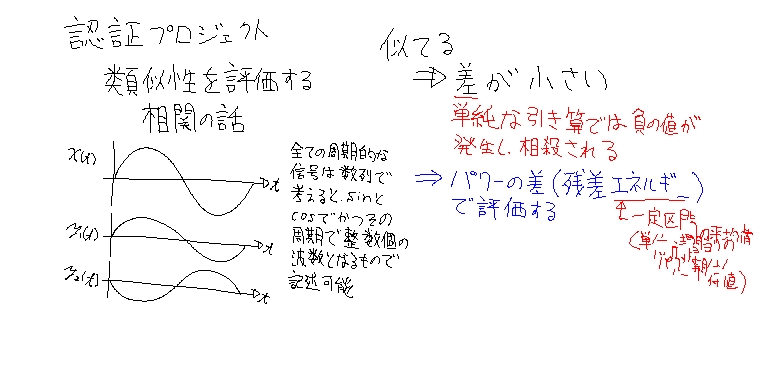 認証プロジェクト
類似性を評価する
相関の話
x(t)
t
y₁(t)
t
y₂(t)
t
全ての周期的な
信号は数列で
考えると、sinと
cosでかつその
周期で整数個の
波数となるもので
記述可能
似てる
⇒ 差が小さい
単純な引き算では負の値が
発生し、相殺される
⇒ パワーの差(残差エネルギー)
で評価する
一定区間
の評価